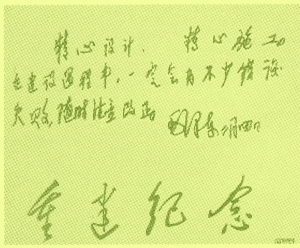 精心设计、精心施工
在建设过程中，一定会有不少错误
失败，随时注意改正
毛泽东
重建纪念